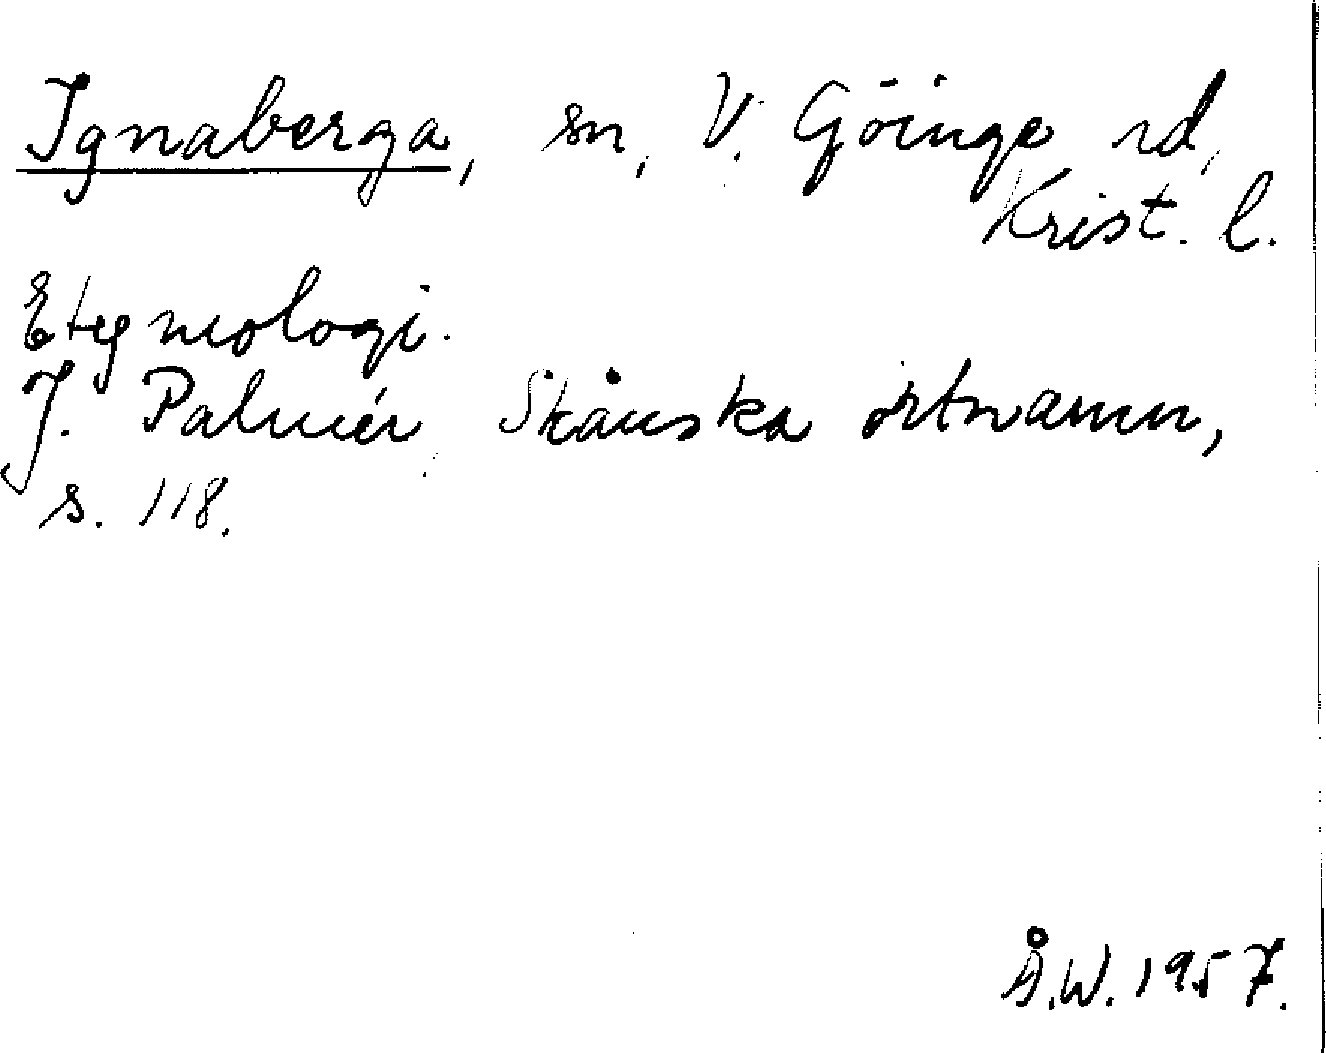 Ignaberga, sn, V. Göinge rd,
Krist. l.
Etymologi.
J. Palmér, Skånska ortnamn,
s. 118.
Å.W. 1957.